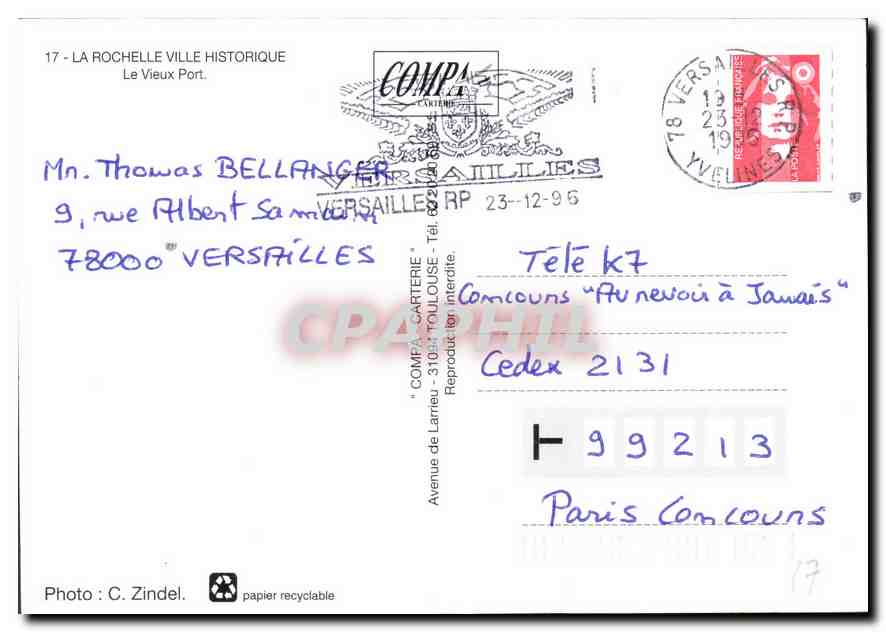 17 - LA ROCHELLE VILLE HISTORIQUE
Le Vieux Port.
COMPA
CARTERIE
VERSAILLES
VERSAILLES RP 23-12-96
78 VERSAILLES R.P.
19
23-12
YVELINES
REPUBLIQUE FRANÇAISE
LA POSTE
Mr. Thomas BELLANGER
9, rue Albert Samain
78000 VERSAILLES
" COMPA - CARTERIE "
Avenue de Larrieu - 31094 TOULOUSE - Tél.
Reproduction interdite.
Télé K7
Concours "Au revoir à Jamais"
Cedex 2131
99213
Paris Concours
CPAPHIL
17
Photo : C. Zindel.
papier recyclable